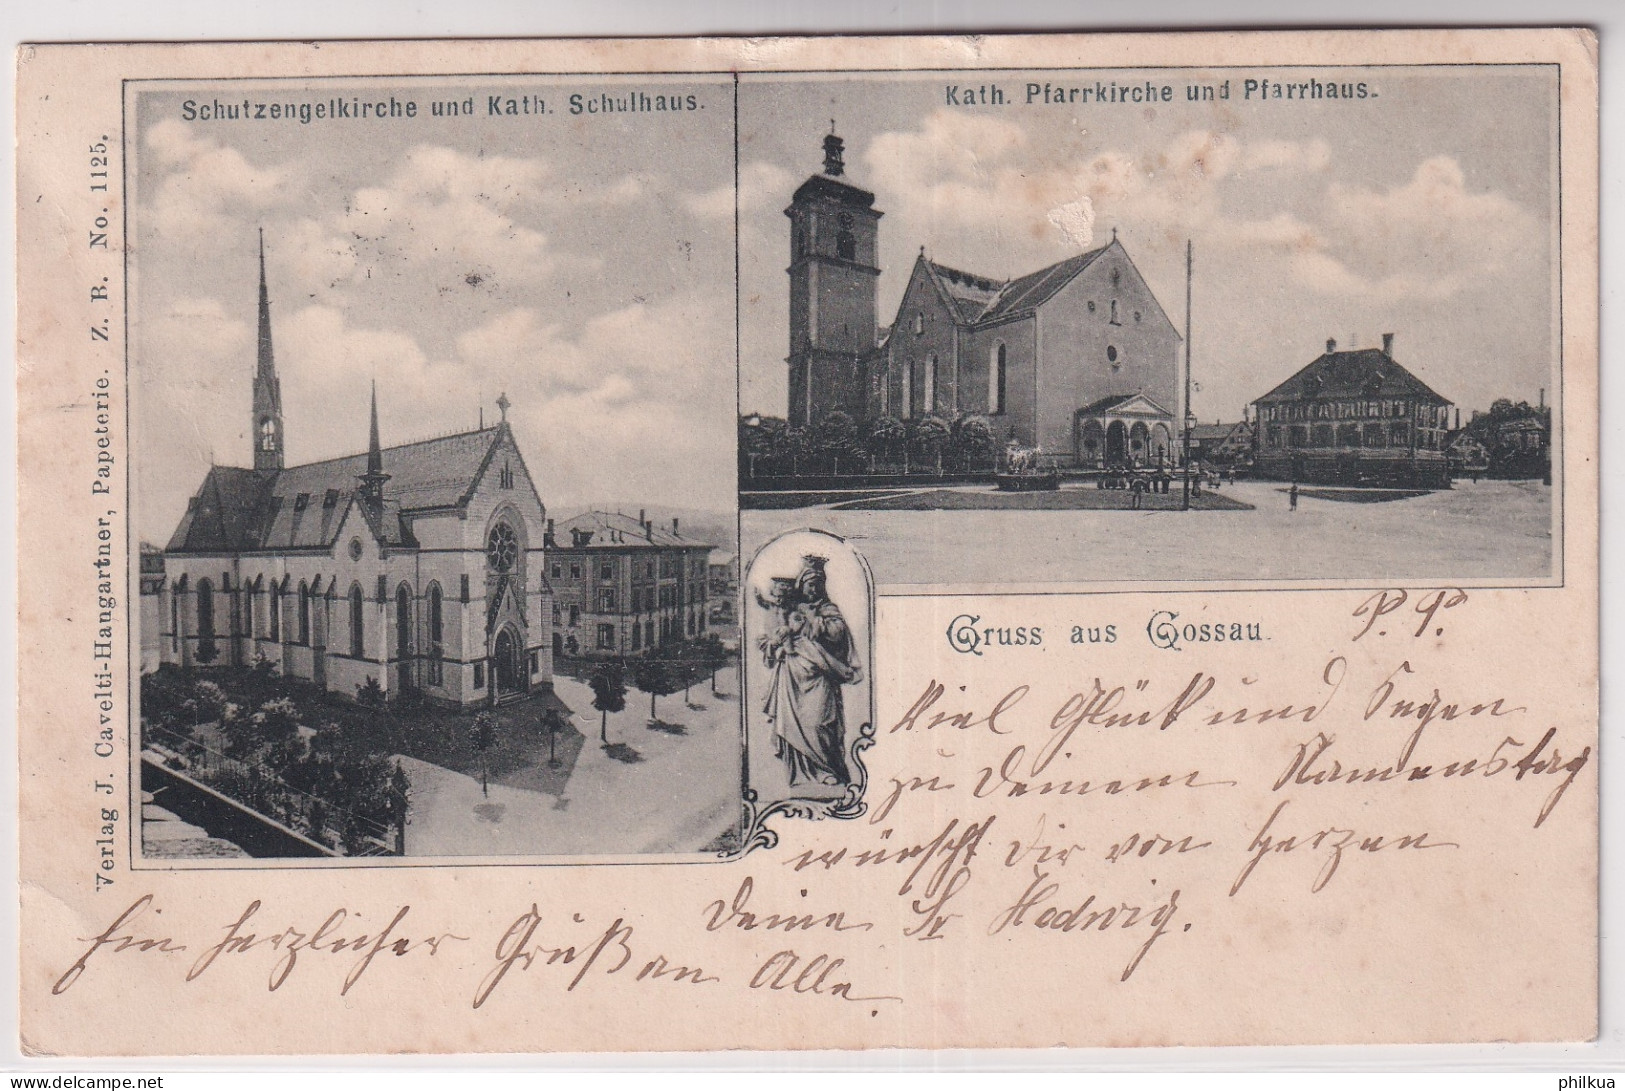 Schutzengelkirche und Kath. Schulhaus.
Kath. Pfarrkirche und Pfarrhaus.
Verlag J. Cavelti-Hangartner, Papeterie. Z. B. No. 1125.
Gruss aus Gossau.
P. P.
Viel Glück und Segen
zu Deinem Namenstag
wünscht Dir von Herzen
Deine Sr Hedwig.
Ein herzlicher Gruß an Alle.
delcampe.net
philkua